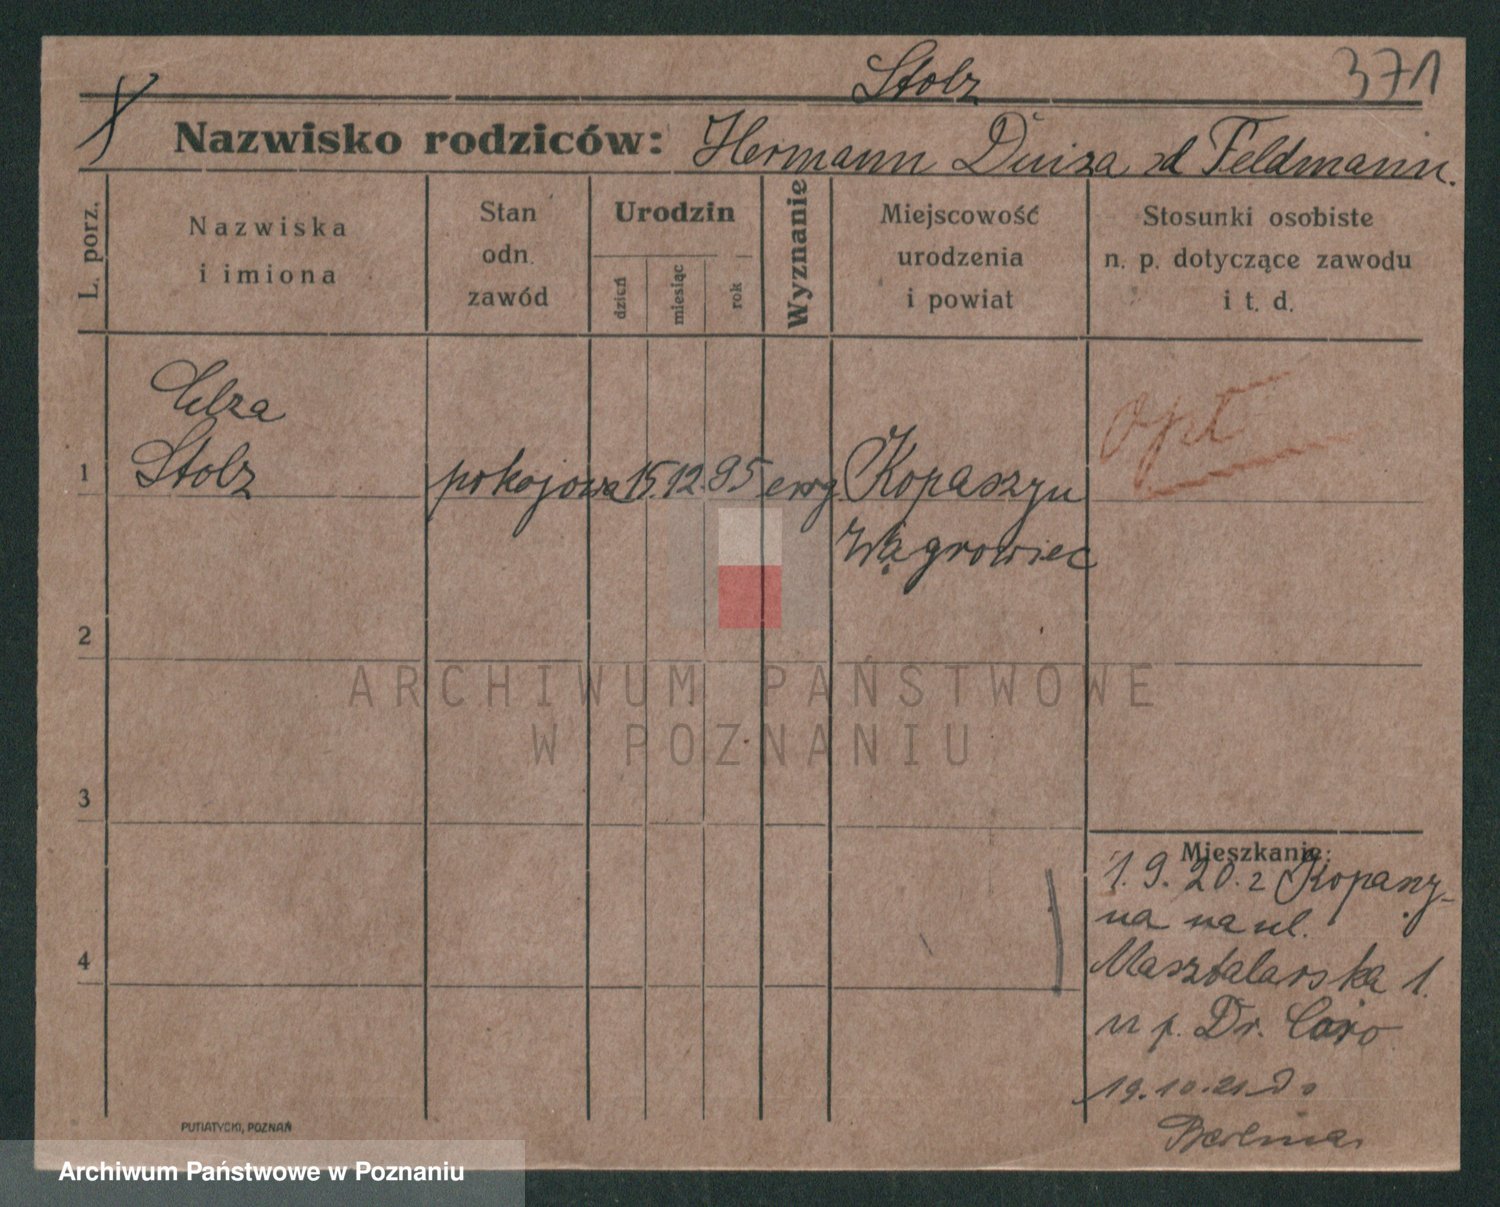 Stolz
371
Nazwisko rodziców: Hermann Luiza zd Feldmann.
L. porz.
Nazwiska
i imiona
Stan
odn.
zawód
Urodzin
dzień
miesiąc
rok
Wyznanie
Miejscowość
urodzenia
i powiat
Stosunki osobiste
n. p. dotyczące zawodu
i t. d.
Elza
Stolz
1
pokojowa 15. 12. 95 ewg Kopaszyn
Wągrowiec
opt
2
3
4
ARCHIWUM PAŃSTWOWE
W POZNANIU
Mieszkanie:
1. 9. 20. z Kopaszy-
na na ul.
Masztalarska 1.
u p. Dr. Caro
19. 10. 21. Do
Berlina
PUTIATYCKI, POZNAŃ
Archiwum Państwowe w Poznaniu